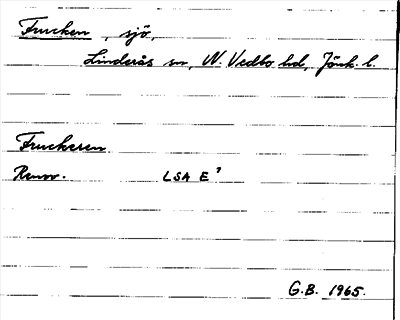 Frucken, sjö,
Linderås sn, N. Vedbo hd, Jönk. l.
Fruckeren
Renov. LSA E⁷
G.B. 1965.